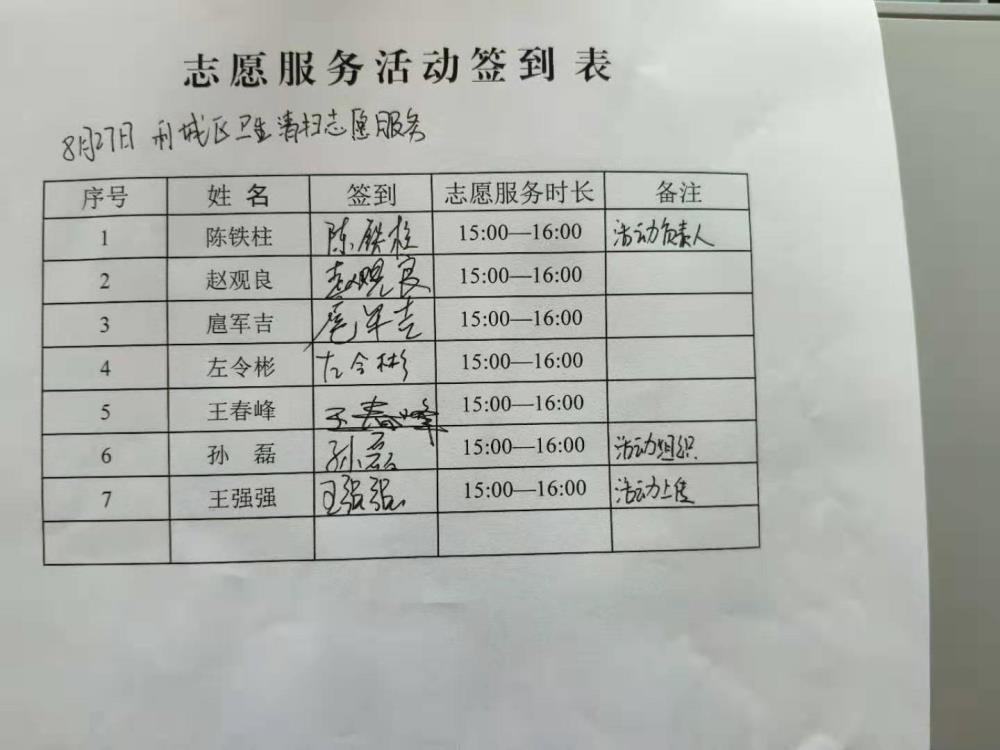 志愿服务活动签到表
8月27日 利城区卫生清扫志愿服务
序号 姓名 签到 志愿服务时长 备注
1 陈铁柱 陈铁柱 15:00—16:00 活动负责人
2 赵观良 赵观良 15:00—16:00
3 扈军吉 扈军吉 15:00—16:00
4 左令彬 左令彬 15:00—16:00
5 王春峰 王春峰 15:00—16:00
6 孙 磊 孙磊 15:00—16:00 活动组织
7 王强强 王强强 15:00—16:00 活动上传